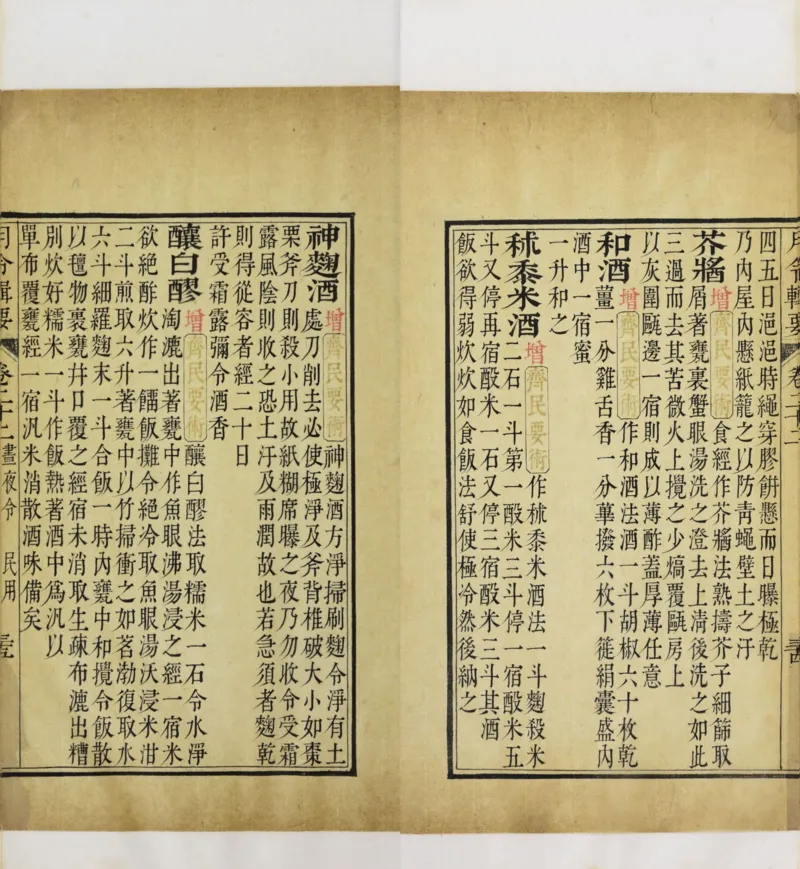 月令輯要 卷二十二
四五日浥浥時繩穿膠餅懸而日曝極乾
乃內屋內懸紙籠之以防青蠅壁土之汙
芥醬 增 齊民要術 食經作芥醬法熟擣芥子細篩取
屑著甕裏蟹眼湯洗之澄去上清後洗之如此
三過而去其苦微火上攪之少熇覆甌房上
以灰圍甌邊一宿則成以薄酢蓋厚薄任意
和酒 增 齊民要術 作和酒法酒一斗胡椒六十枚乾
薑一分雞舌香一分蓽撥六枚下簁絹囊盛內
酒中一宿蜜
一升和之
秫黍米酒 增 齊民要術 作秫黍米酒法一斗麴殺米
二石一斗第一酘米三斗停一宿酘米五
斗又停再宿酘米一石又停三宿酘米三斗其酒
飯欲得弱炊炊如食飯法舒使極冷然後納之
神麴酒 增 齊民要術 神麴酒方淨掃刷麴令淨有土
處刀削去必使極淨及斧背椎破大小如棗
栗斧刀則殺小用故紙糊席曝之夜乃勿收令受霜
露風陰則收之恐土汙及雨潤故也若急須者麴乾
則得從容者經二十日
許受霜露彌令酒香
釀白醪 增 齊民要術 釀白醪法取糯米一石令水淨
淘漉出著甕中作魚眼沸湯浸之經一宿米
欲絕酢炊作一餾飯攤令絕冷取魚眼湯沃浸米泔
二斗煎取六升著甕中以竹掃衝之如茗渤復取水
六斗細羅麴末一斗合飯一時內甕中和攪令飯散
以氊物裹甕井口覆之經宿未消取生疎布漉出糟
別炊好糯米一斗作飯熱著酒中爲汎以
單布覆甕經一宿汎米消散酒味備矣
月令輯要 卷二十二 晝夜令 民用